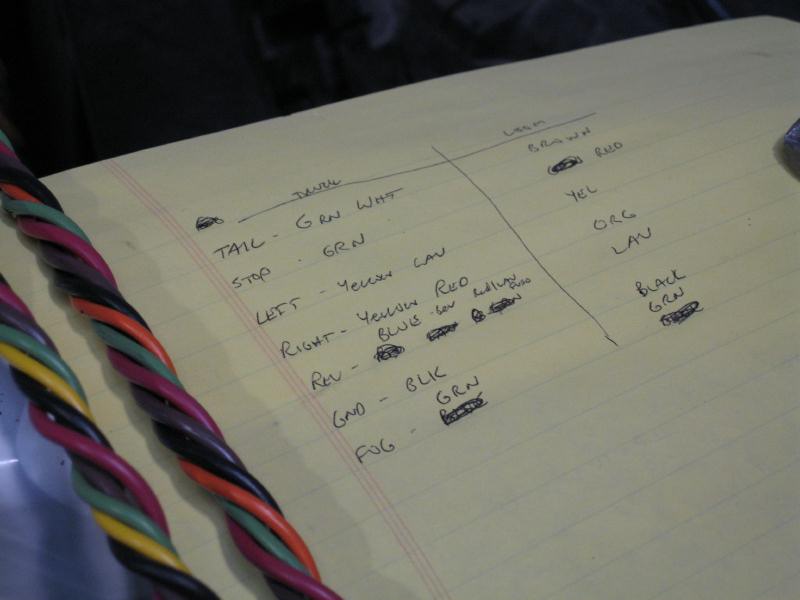 LOOM
TAIL - GRN WHT BROWN
STOP - GRN RED
LEFT - YELLOW LAV YEL
RIGHT - YELLOW RED ORG
REV - BLUE LAV
GND - BLK BLACK
FOG - GRN GRN